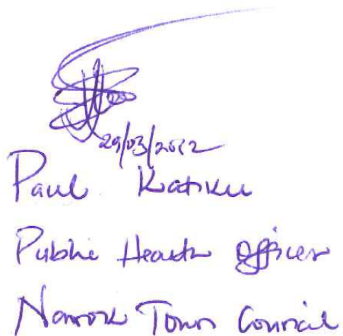 29/03/2012
Paul Katiku
Public Health Officer
Narok Town Council